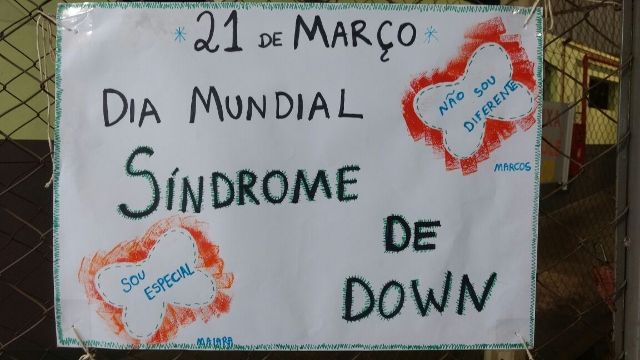 * 21 DE MARÇO *
DIA MUNDIAL
NÃO SOU
DIFERENTE
MARCOS
SÍNDROME
DE
DOWN
SOU
ESPECIAL
MAIARA